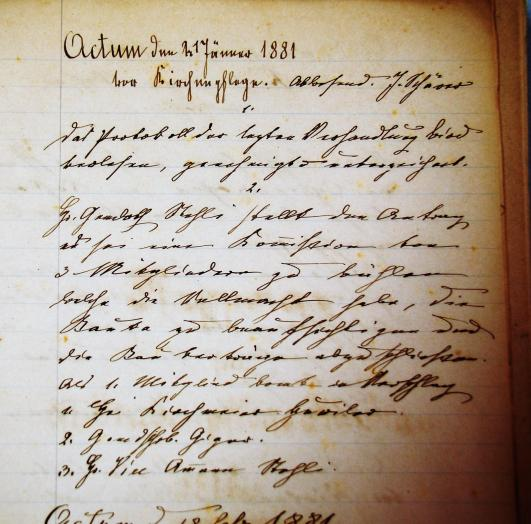 Actum den 21 Jänner 1881
vor Kirchenpflege. Abwesend. J. Schärer
1.
Das Protokoll der letzten Verhandlung wird
verlesen, genehmigt u unterzeichnet.
2.
Stehli stellt den Antrag
es sei eine Kommission von
3 Mitgliedern zu wählen
welche die Vollmacht habe, die
Baute zu beaufsichtigen und
die Bauverträge abzuschliessen.
als 1. Mitglied komt in Vorschlag
Hr. Kirchmeier
2.
3. Hr. Vice Amann Stehli.
Actum d 18 Feb. 1881